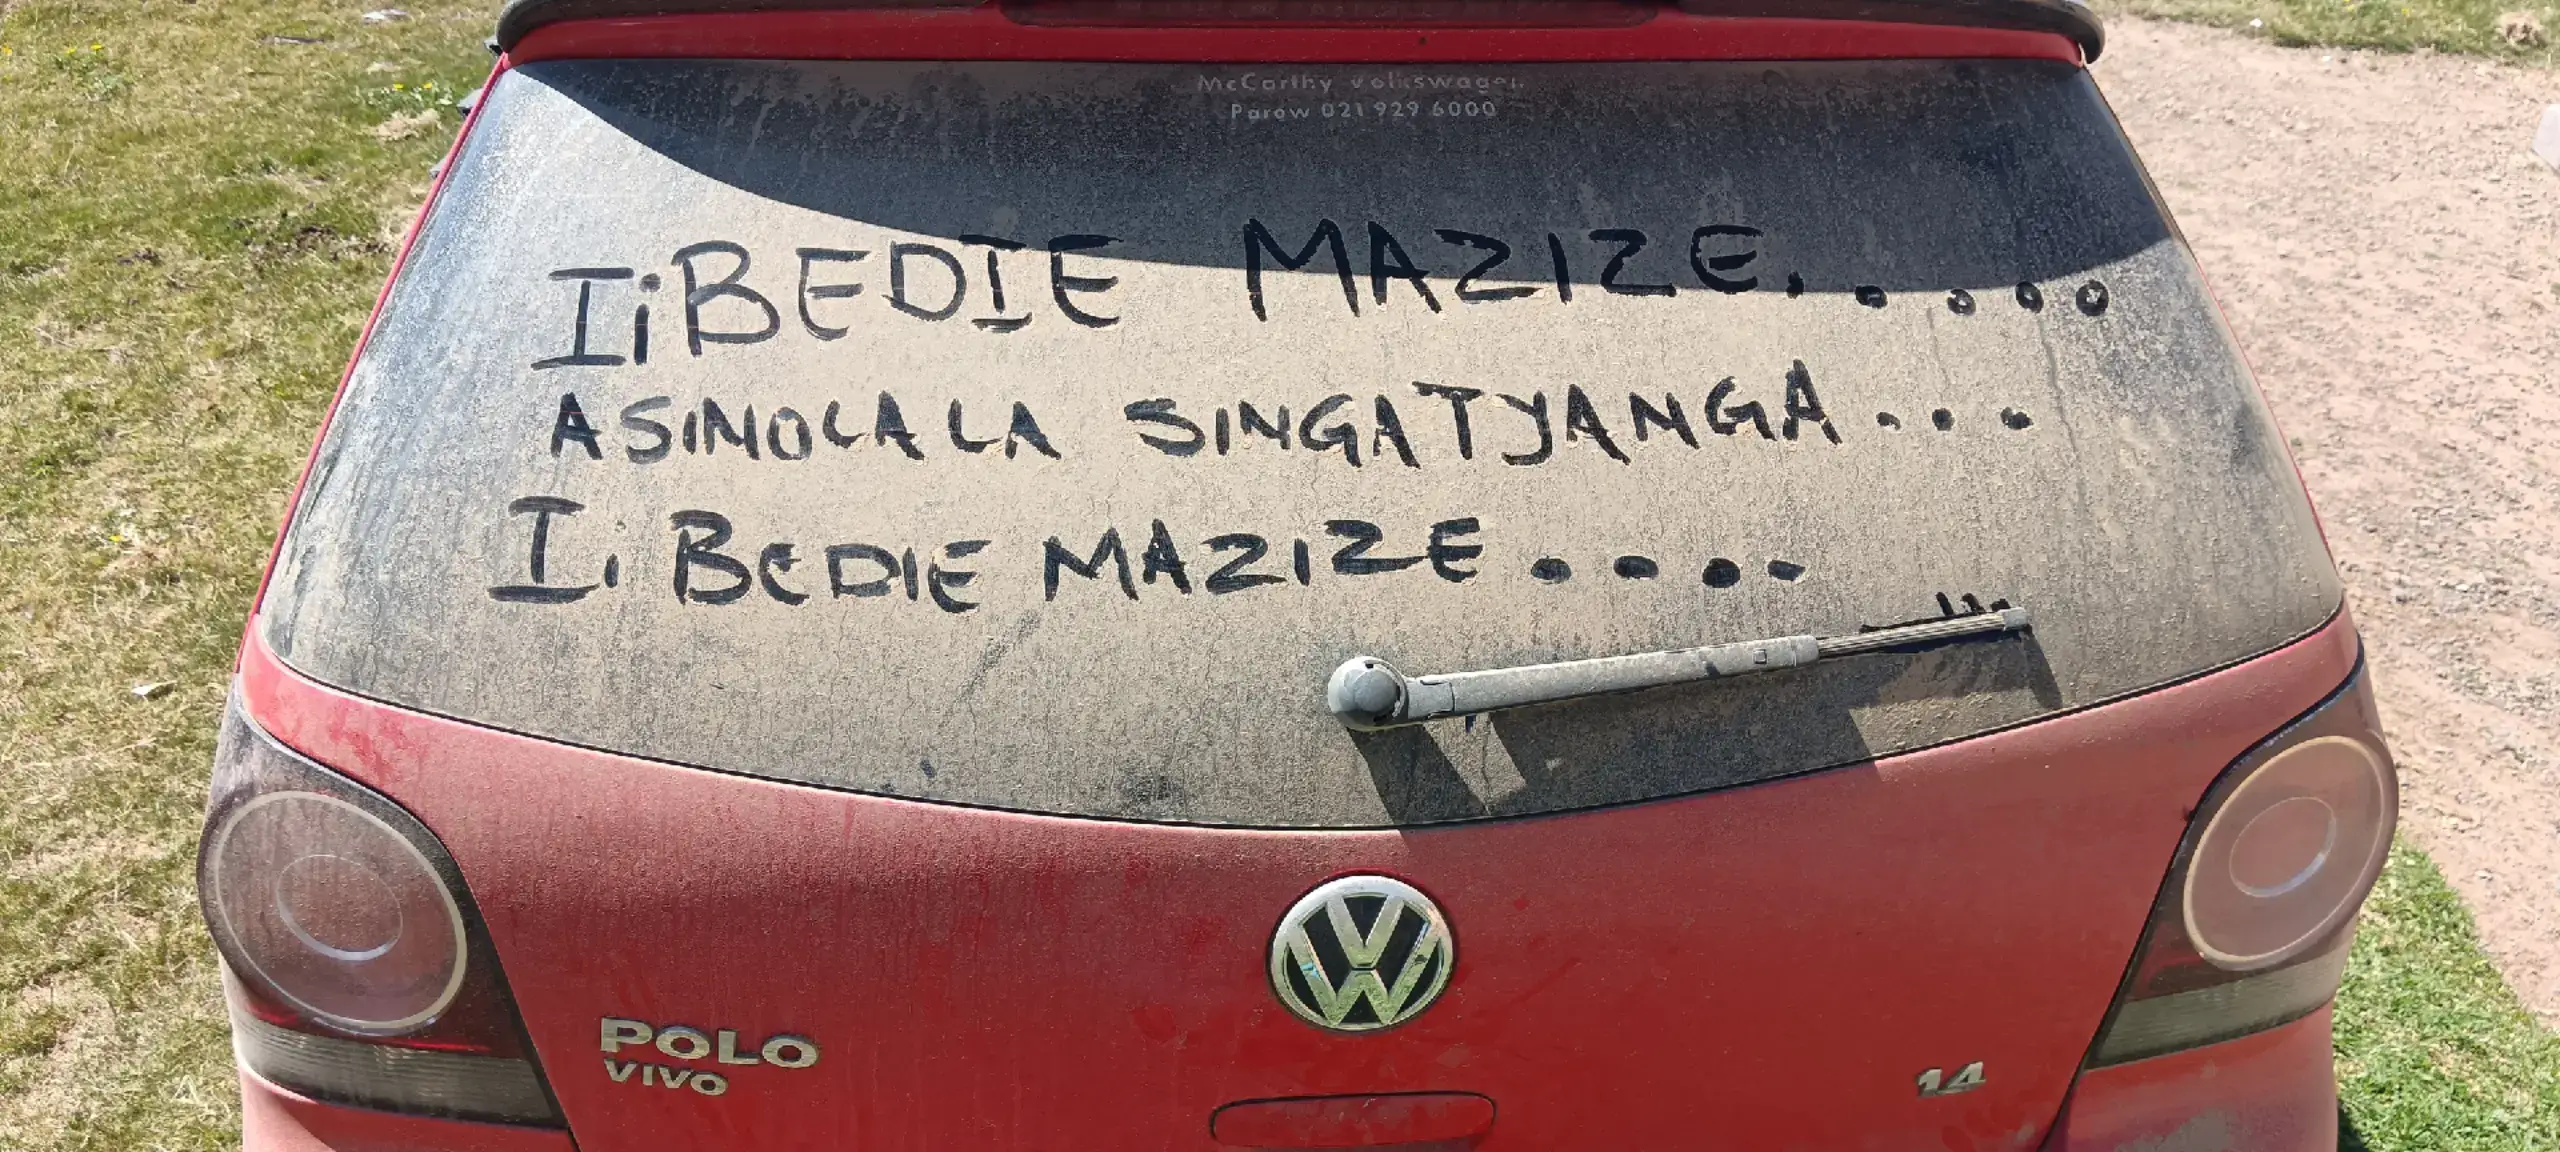 McCarthy Volkswagen
Parow 021 929 6000
IiBEDIE MAZIZE.....
ASINOLALA SINGATYANGA...
Ii BEDIE MAZIZE....
POLO
VIVO
1.4